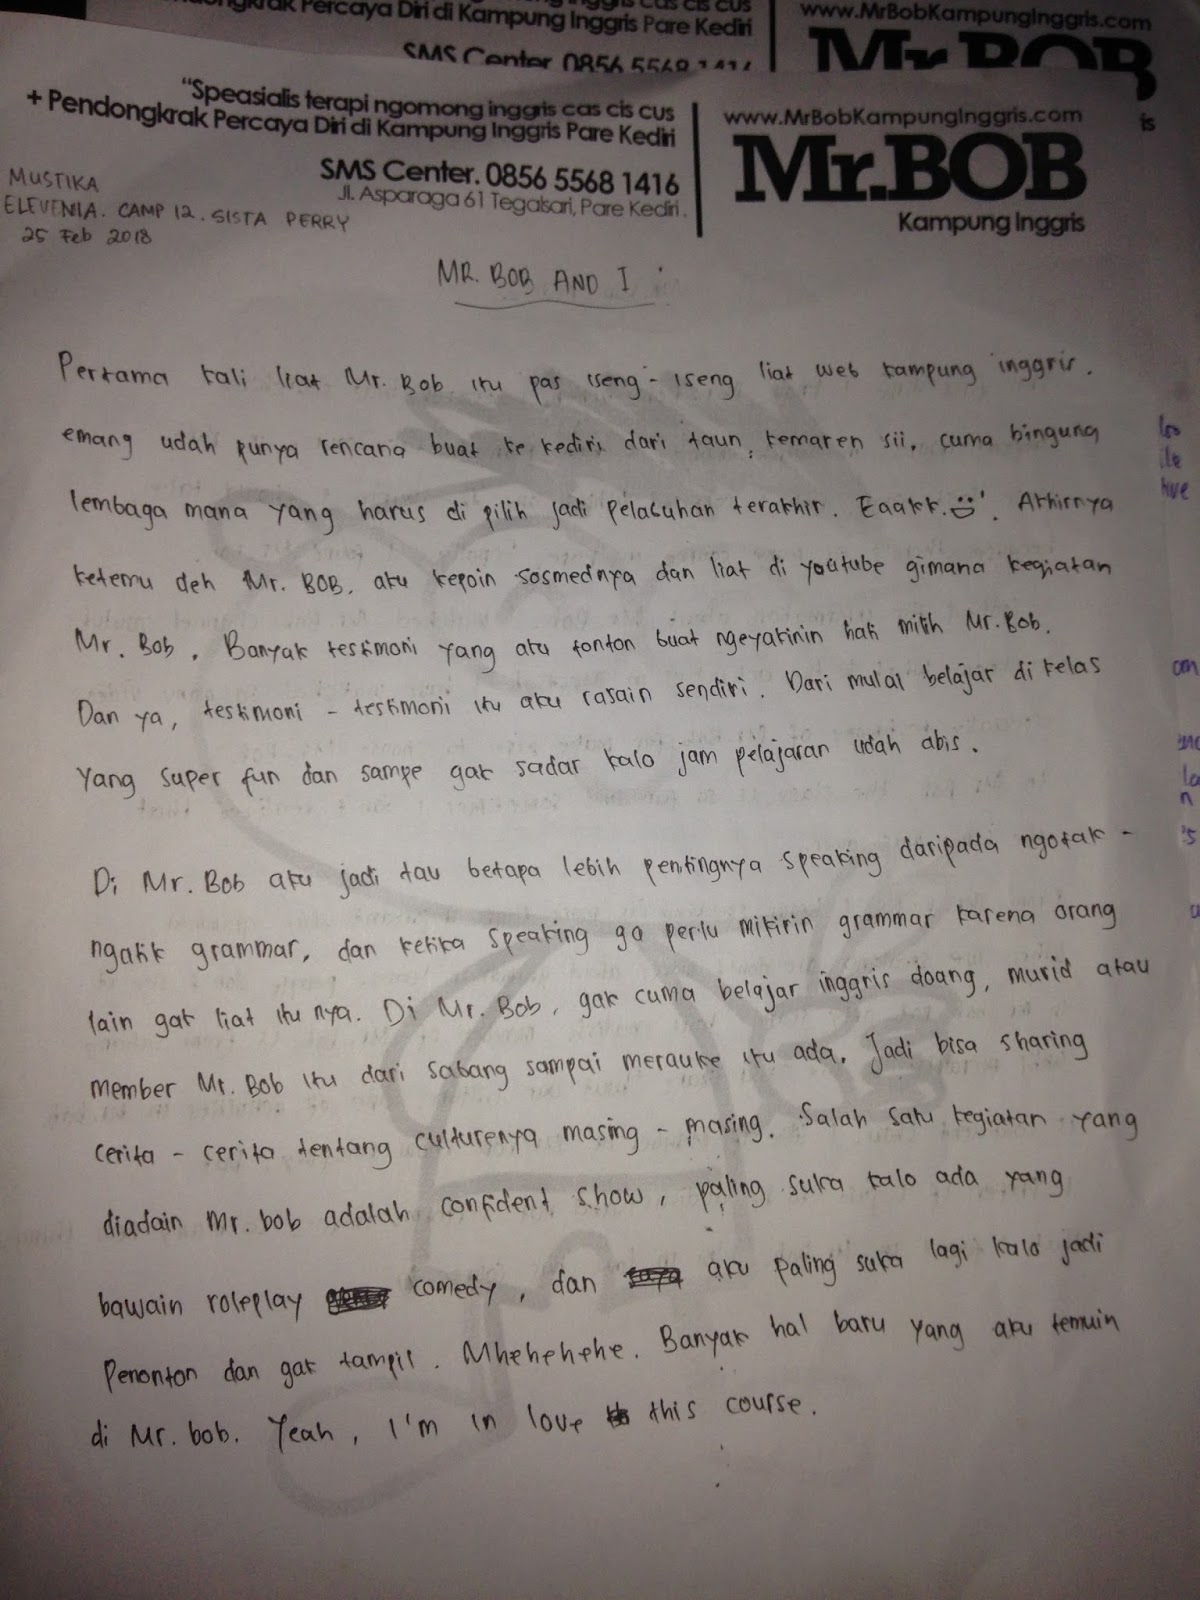 ndongkrak Percaya Diri di Kampung Inggris Pare Kediri
SMS Center. 0856 5568 1416
www.MrBobKampungInggris.com
Mr.BOB
is
"Speasialis terapi ngomong inggris cas cis cus
+ Pendongkrak Percaya Diri di Kampung Inggris Pare Kediri
SMS Center. 0856 5568 1416
Jl. Asparaga 61 Tegalsari, Pare Kediri.
www.MrBobKampungInggris.com
Mr.BOB
Kampung Inggris
MUSTIKA
ELEVENIA. CAMP 12. SISTA PERRY
25 Feb 2018
MR. BOB AND I :
Pertama kali liat Mr. Bob itu pas iseng - iseng liat web kampung inggris.
emang udah punya rencana buat ke kediri dari taun kemaren sii, cuma bingung
lembaga mana yang harus di pilih jadi pelabuhan terakhir. Eaakk. Akhirnya
ketemu deh Mr. BOB. aku kepoin sosmednya dan liat di youtube gimana kegiatan
Mr. Bob. Banyak testimoni yang aku tonton buat ngeyakinin hati milih Mr. Bob.
Dan ya, testimoni - testimoni itu aku rasain sendiri. Dari mulai belajar di kelas
yang super fun dan sampe gak sadar kalo jam pelajaran udah abis.
Di Mr. Bob aku jadi tau betapa lebih pentingnya speaking daripada ngotak -
ngatik grammar, dan ketika speaking ga perlu mikirin grammar karena orang
lain gak liat itu nya. Di Mr. Bob, gak cuma belajar inggris doang, murid atau
member Mr. Bob itu dari sabang sampai merauke itu ada. Jadi bisa sharing
cerita - cerita tentang culturenya masing - masing. Salah satu kegiatan yang
diadain Mr. bob adalah confident show, paling suka kalo ada yang
bawain roleplay comedy, dan aku paling suka lagi kalo jadi
Penonton dan gak tampil. Mhehehehe. Banyak hal baru yang aku temuin
di Mr. bob. Yeah, I'm in love this course.